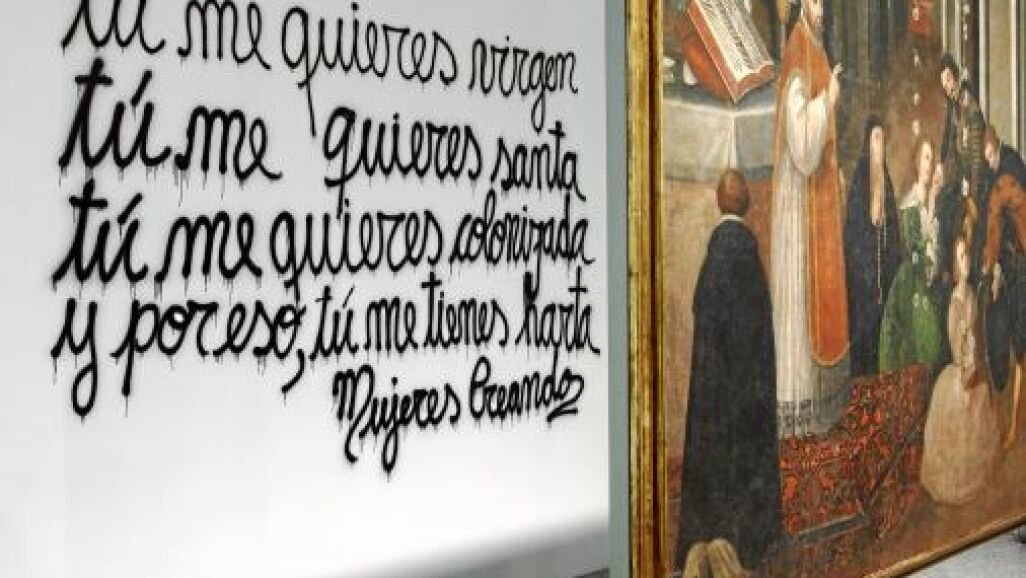 tú me quieres virgen
tú me quieres santa
tú me quieres colonizada
y por eso, tú me tienes harta
Mujeres Creando